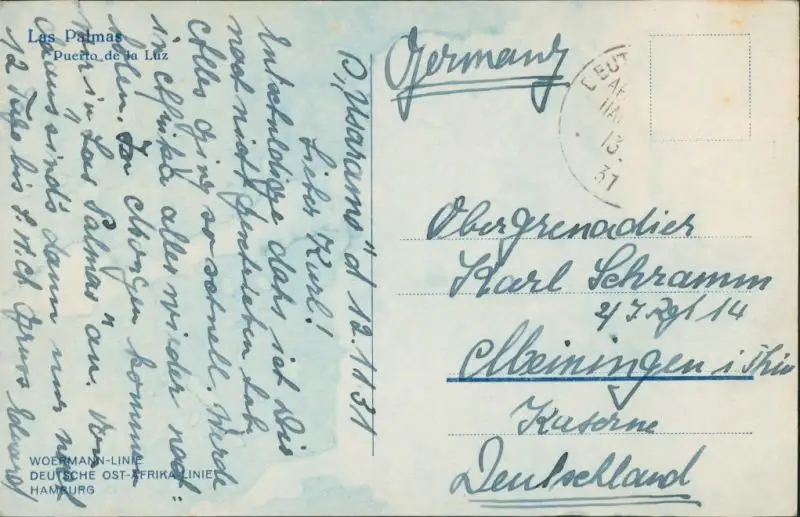 Las Palmas
Puerto de la Luz
D. "Usaramo" d 12.1.31
Lieber Karl!
Entschuldige dass ich Dir
noch nicht geschrieben hab.
Alles ging so schnell. Werde
in Afrika alles wieder nach=
holen. Am Morgen kommen
wir in "Las Palmas" an. Von
da aus sind's dann nur noch
12 Tage bis Gruss Eduard
WOERMANN-LINIE
DEUTSCHE OST-AFRIKA-LINIE
HAMBURG
Germany
13.
31
Obergrenadier
Karl Schramm
2/ J. Rgt 14
Meiningen i Thür
Kaserne
Deutschland